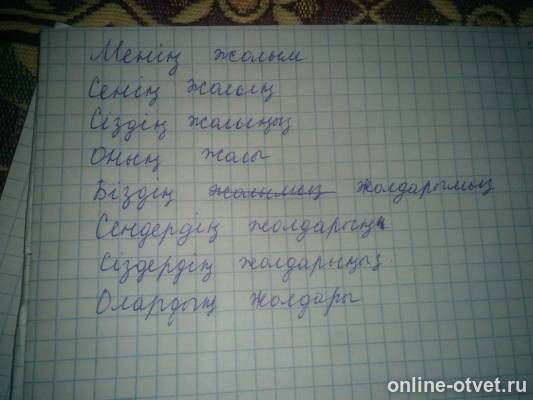 Менің жолым
Сенің жолың
Сіздің жолыңыз
Оның жолы
Біздің жолымыз жолдарымыз
Сендердің жолдарың
Сіздердің жолдарыңыз
Олардың жолдары
online-otvet.ru